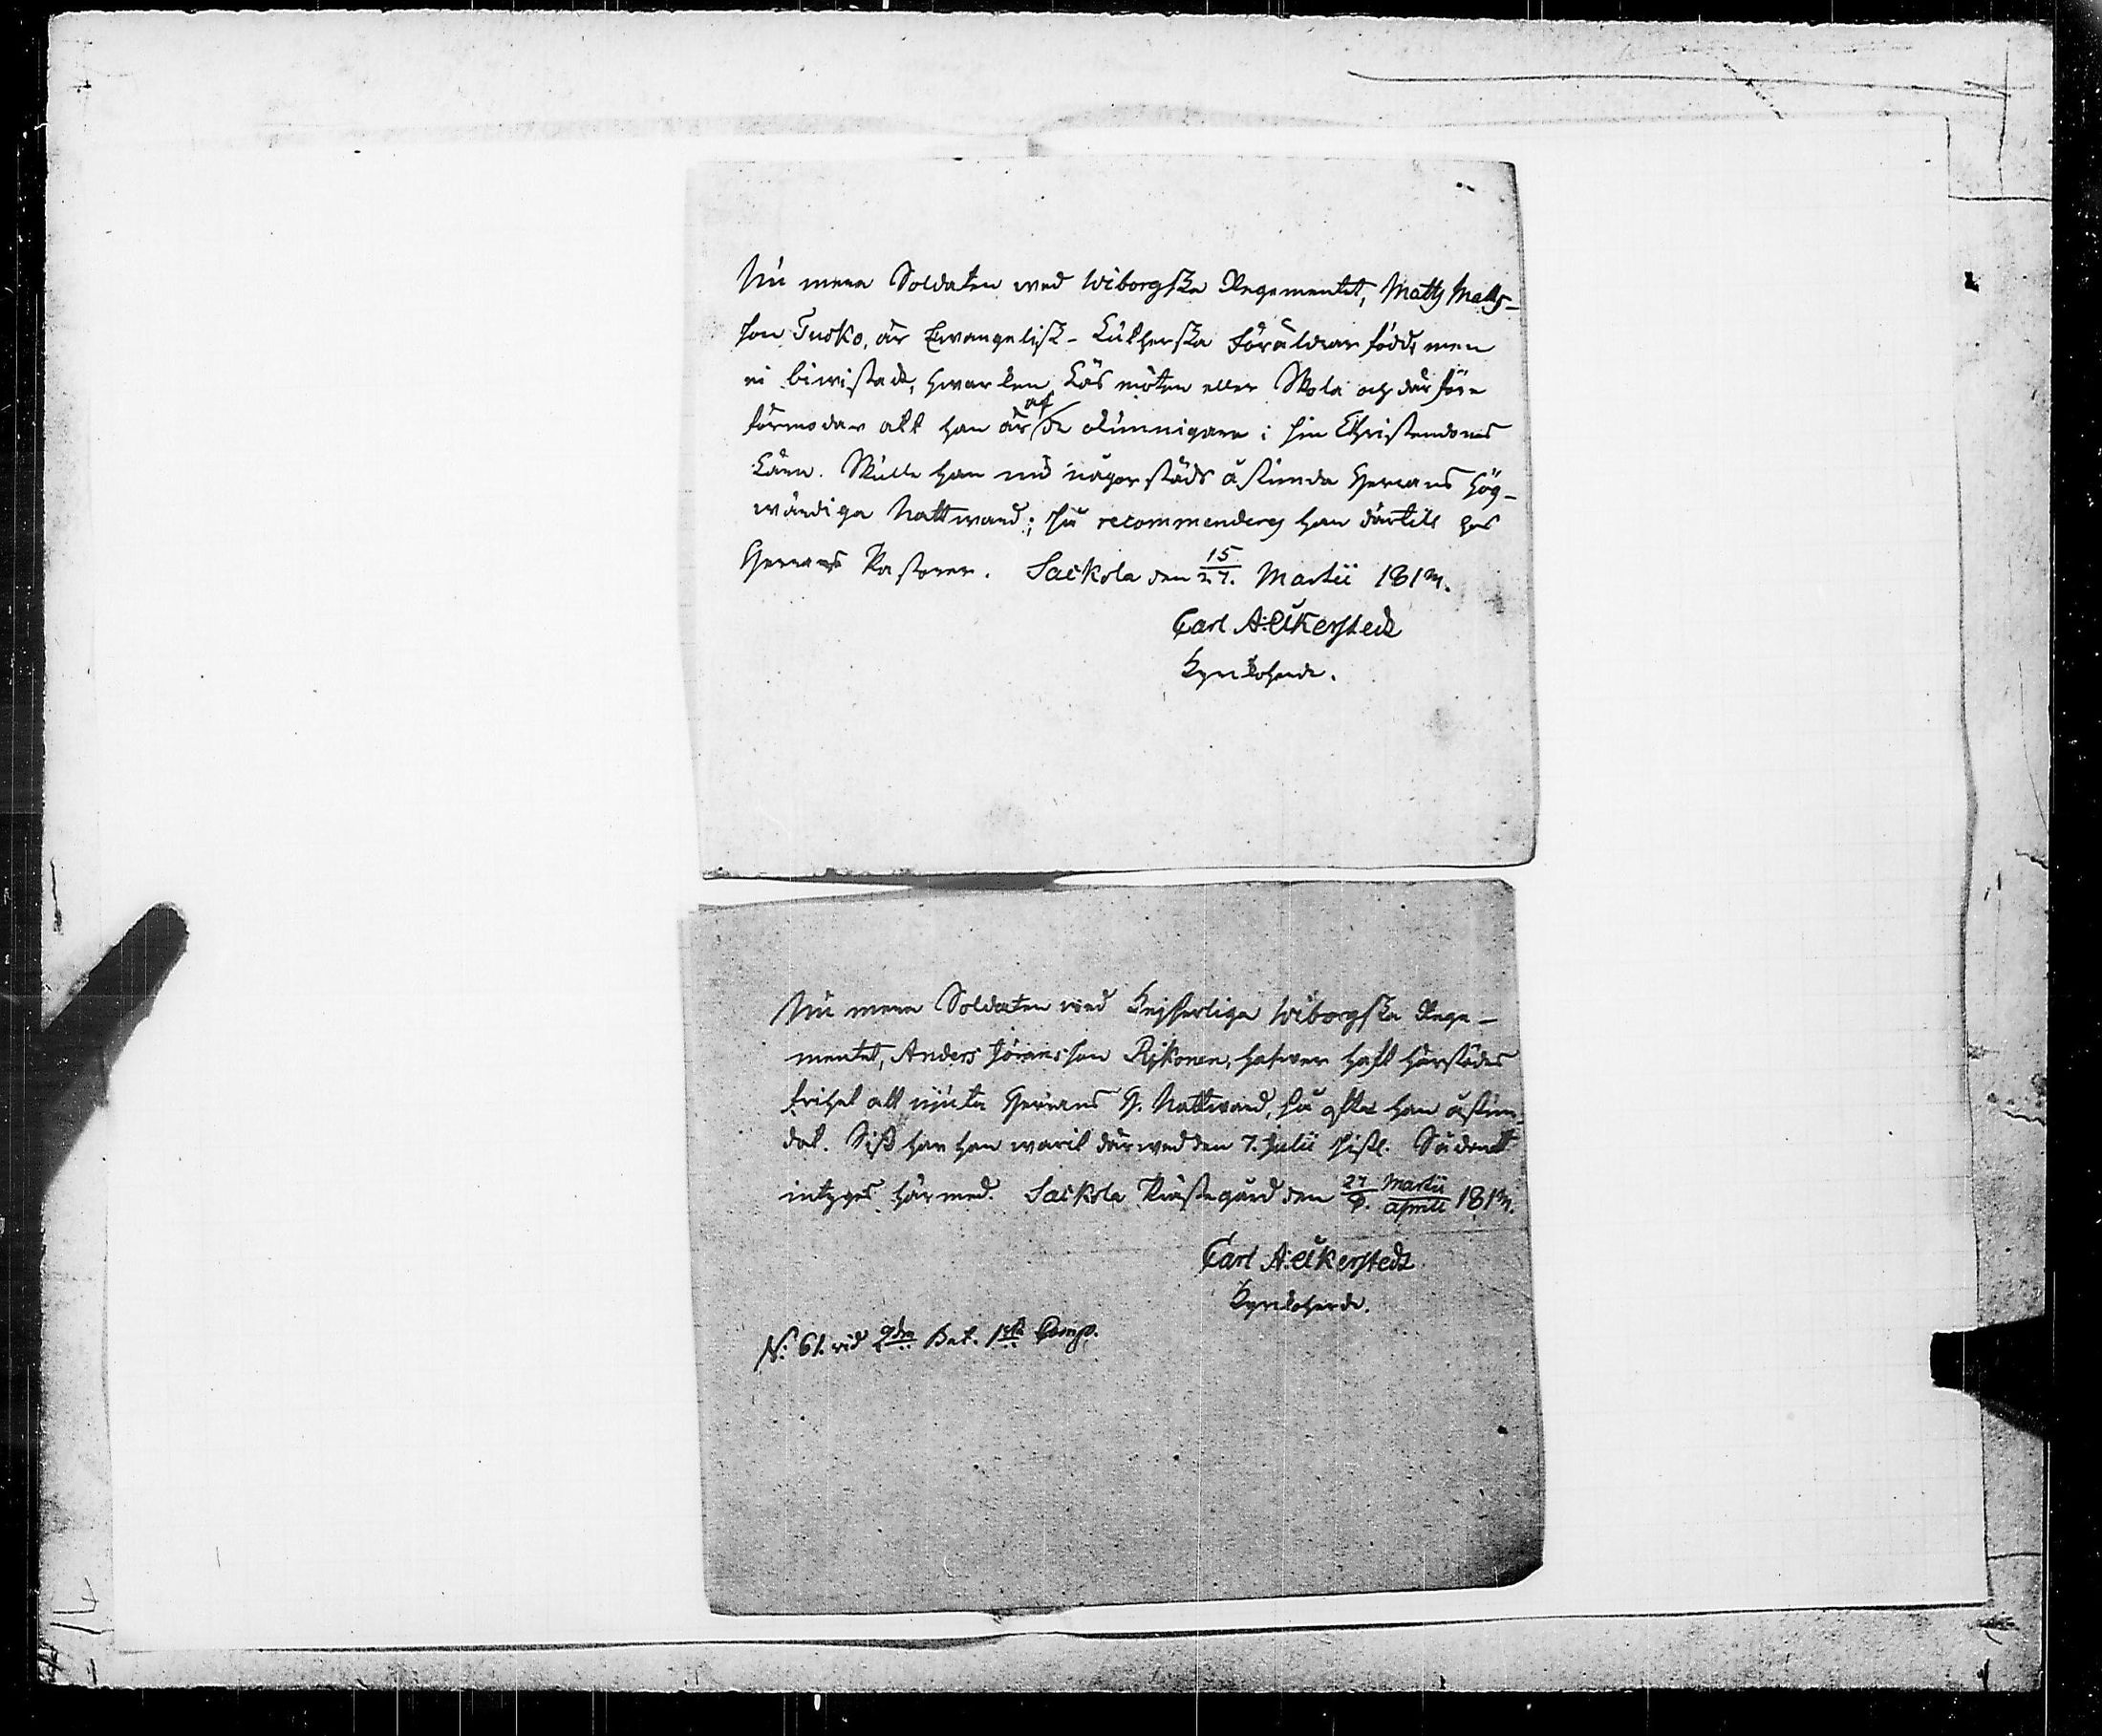 Nu mera Soldaten wed Wiborgska Regementet, Matts Matts-
son Tusko, är Ewangelisk-Lutherska Föräldrar född, men
ej biwistadt, hwarken Läsmöten eller Skola och därföre
förmodar att han är af de okunnigare i sin Christendoms
Lära. Skulle han nu någorstäds åstunda Herrans Hög-
wärdiga Nattward; så recommenderas han därtill hos
Herrans Pastorer. Sackola den 15/27. Martii 
Carl A: Åkerstedt
Kyrkoherde.
Nu mera Soldaten wed Kejserliga Wiborgska Rege-
mentet, Anders Jöransson Rijkonen, hafwer haft härstädes
frihet att njuta Herrans H. Nattward, så ofta han åstun-
dat. Sist har han warit därwed den 7. Julii sistl. Sådant
intygas härmed. Sackola Prästegård den 27 Martii/ Aprili 
Carl A: Åkerstedt
Kyrkoherde.
N: 61. wid 2dra Bat. 1sta Comp.